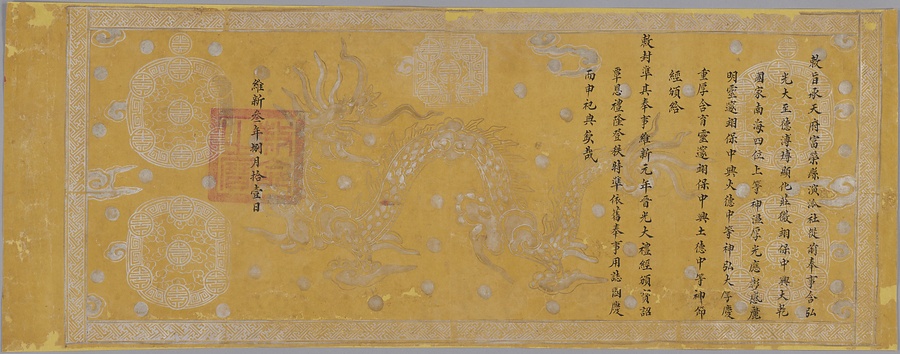 敕旨承天府富榮縣演派社從前奉事含弘
光大至德溥博顯化莊徽翊保中興大乾
國家南海四位上等神厚光應彰感麗
明靈邃翊保中興大德中等神弘大慶
重厚含育靈邃翊保中興土德中等神節
經頒給
敕封準其奉事維新元年晉光大禮經頒寶詔
覃恩禮隆登秩特準依舊奉事用誌國慶
而申祀典欽哉
維新叁年捌月拾壹日